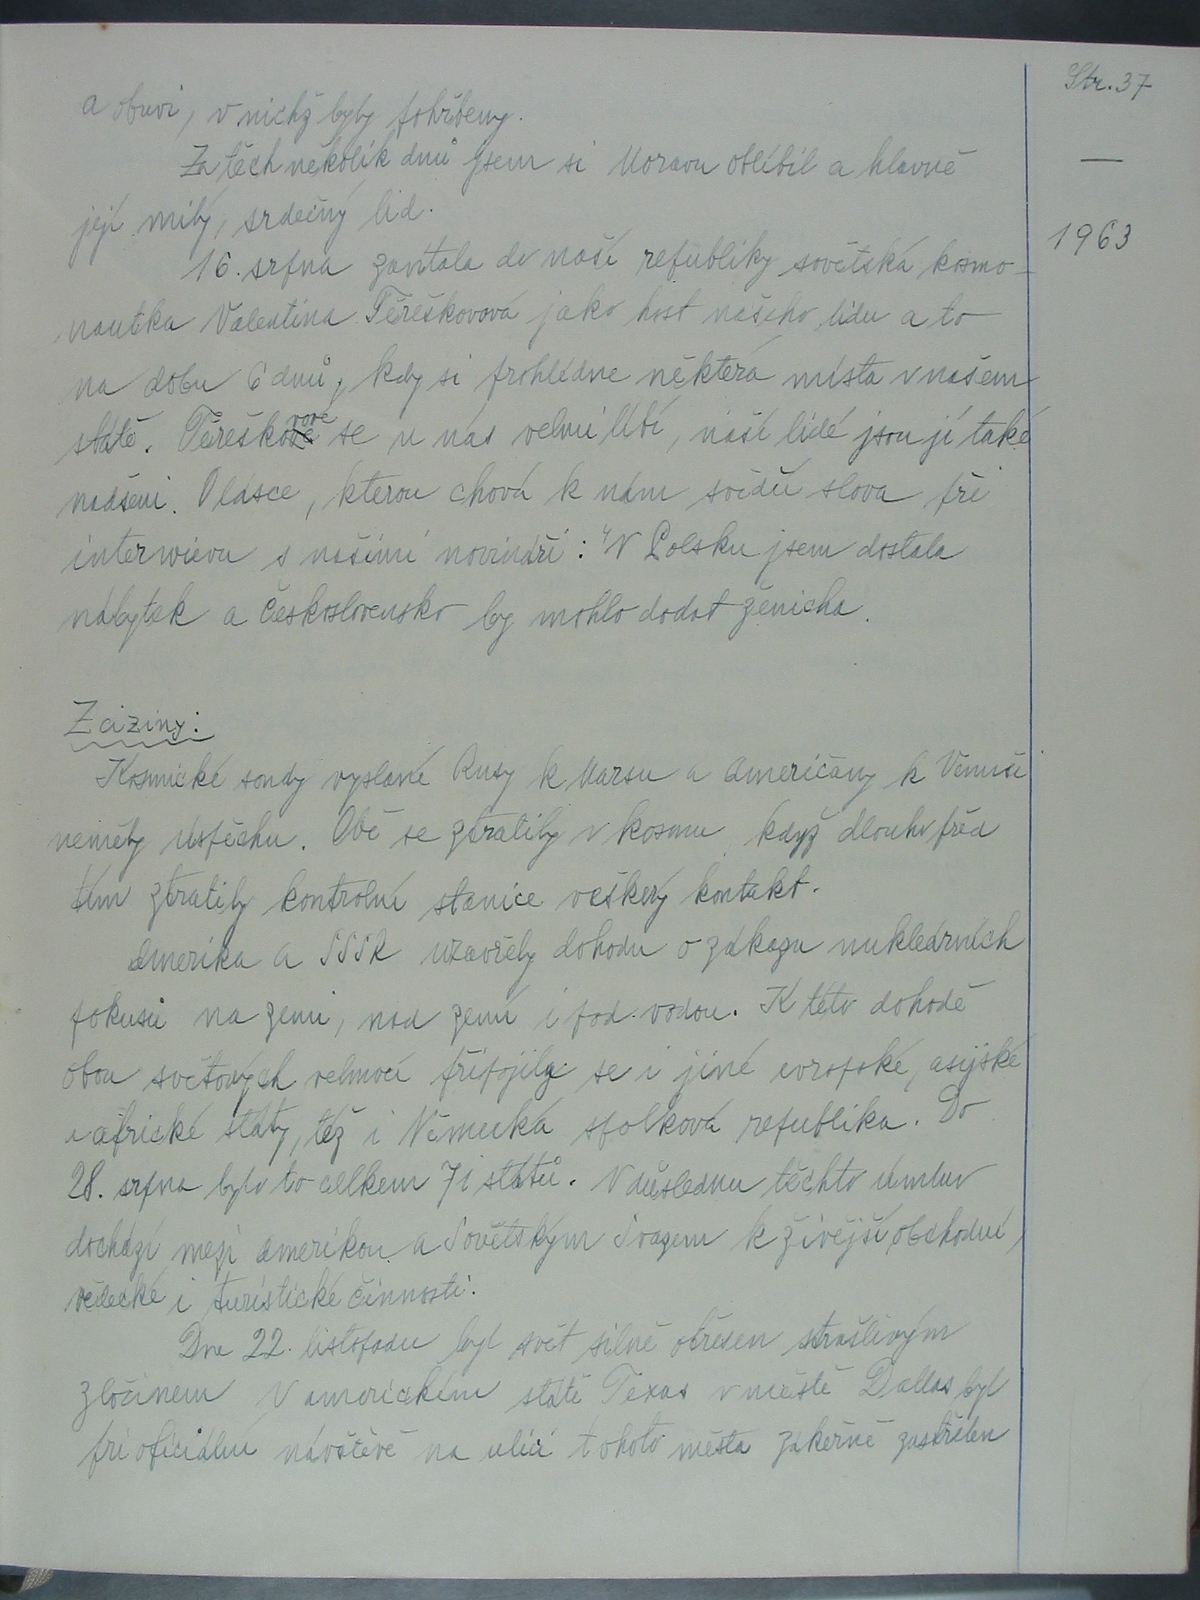 Str. 37
a obuvi, v nichž byly pohřbeny.
Za těch několik dnů jsem si Moravu oblíbil a hlavně
její milý, srdečný lid.
1963
16. srpna zavítala do naší republiky sovětská kosmo-
nautka Valentina Těreškovová jako host našeho lidu a to
na dobu 6 dnů, kdy si prohlédne některá místa v našem
státě. Těreškovové se u nás velmi líbí, naši lidé jsou jí také
nadšeni. O lásce, kterou chová k nám svědčí slova při
interwievu s našimi novináři: "V Polsku jsem dostala
nábytek a Československo by mohlo dodat ženicha.
Z ciziny:
Kosmické sondy vyslané Rusy k Marsu a Američany k Venuši
neměly úspěchu. Obě se ztratily v kosmu, když dlouho před
tím ztratily kontrolní stanice veškerý kontakt.
Amerika a SSSR uzavřely dohodu o zákazu nukleárních
pokusů na zemi, nad zemí i pod vodou. K této dohodě
obou světových velmocí připojily se i jiné evropské, asijské
i africké státy, též i Německá spolková republika. Do
28. srpna bylo to celkem 71 států. V důsledku těchto úmluv
dochází mezi Amerikou a Sovětským Svazem k živější obchodní,
vědecké i turistické činnosti.
Dne 22. listopadu byl svět silně otřesen strašlivým
zločinem V americkém státě Texas v městě Dallas byl
při oficiální návštěvě na ulici tohoto města zákeřně zastřelen